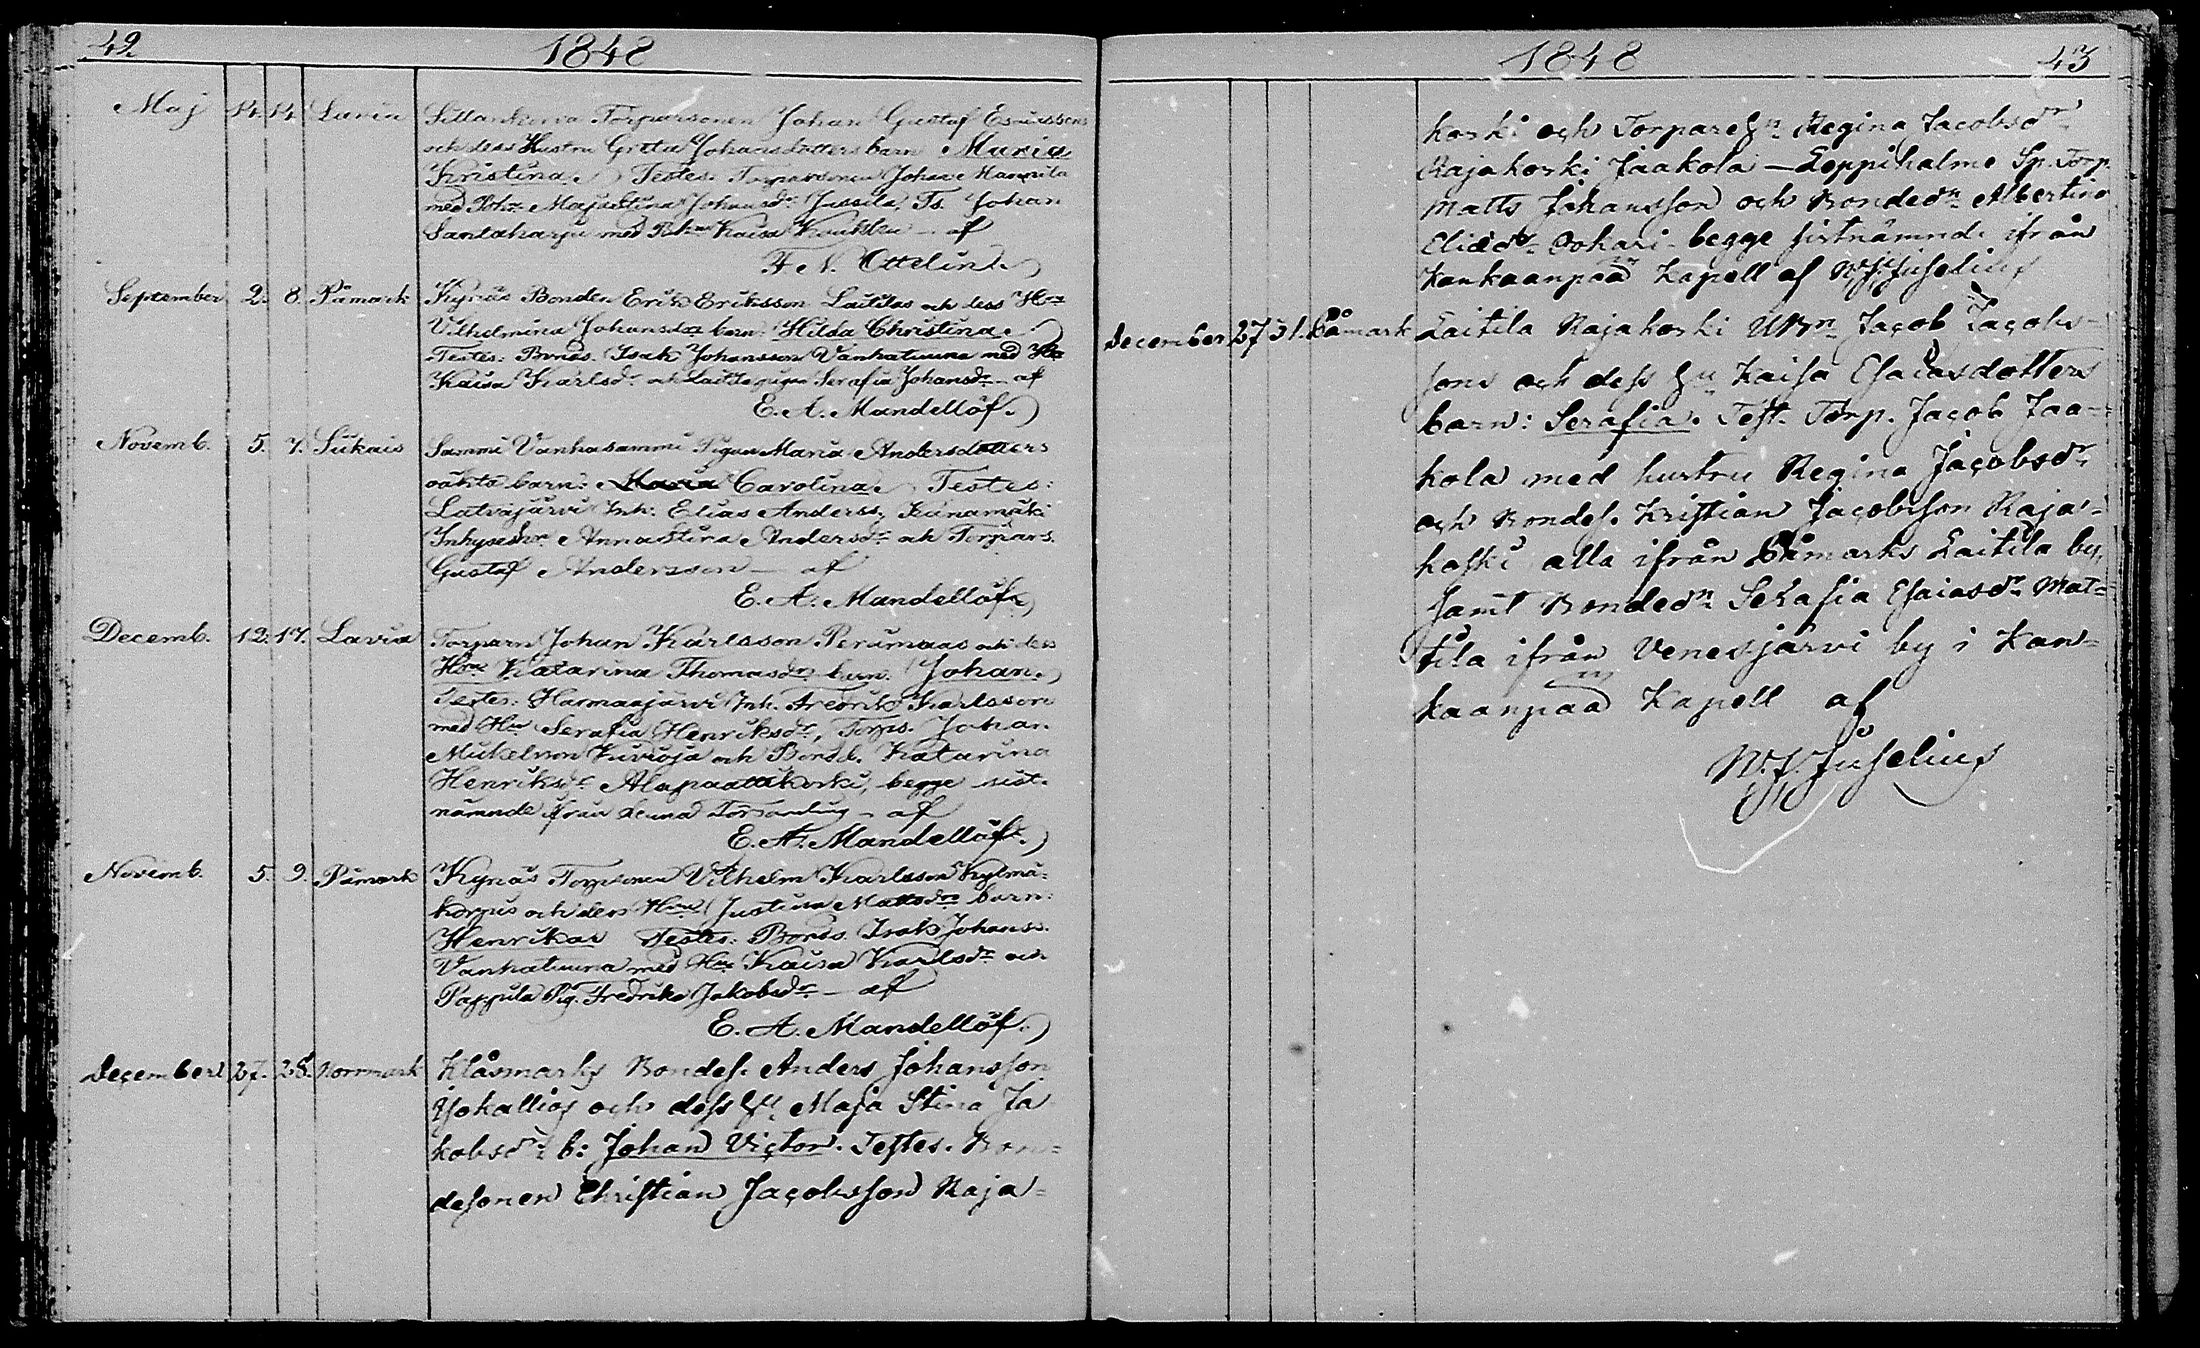 42.
1848
Maj 14. 14. Lavia Sillankorva Torparsonen Johan Gustaf
och dess Hustru Greta Johansdotters barn Maria
Kristina. Testes: Torparsonen Johan Mannila
med Majastina Johansdr Jussila, Ts. Johan
Santaharju med Kaisa - af
F. N. Ottelin.
September 2. 8. Påmark Kynäs Bonden Erik Eriksson Laitilas och dess Hru
Vilhelmina Johansdrs barn: Hilda Christina.
Testes: Bonds. Isak Johansson Vanhatuuna med Hu
Kaisa Karlsdr och pigan Serafia Johansdr - af
E. A. Mandellöf.
Novemb. 5. 7. Siikais Sammi Vanhasammi Pigan Maria Andersdotters
oäkta barn: Maria Carolina. Testes:
Latvajärvi Inh. Elias Anderss,
Inhyseshn Annastina Andersdr och Torpars.
Gustaf Andersson - af
E. A. Mandellöf.
Decemb. 12. 17. Lavia Torparn Johan Karlsson Perämaas och dess
Hrus Katarina Thomasdrs barn: Johan.
Testes: Harmaajärvi Inh. Fredrik Karlsson
med Hu Serafia Henriksdr, Torps. Johan
Mickelsson Kivioja och Bondd. Katarina
Henriksdr Alapaattikoski, begge sist-
nämnde ifrån Församling - af
E. A. Mandellöf.
Novemb. 5. 9. Påmark Kynäs Torpsonen Vilhelm Karlsson Kylmä-
korpis och dess Hrus Justina Mattsdrs barn:
Henrika. Testes: Bonds. Isak Johanss.
Vanhatuuna med Hru Kaisa Karlsdr och
Pappila Pig. Fredrika Jakobsdr - af
E. A. Mandellöf.
December 27. 28. Norrmark Klåsmarks Bondes. Anders Johansson
Yokallios och dess Hu Maja Stina Ja
kobsdr b: Johan Victor. Testes. Bon=
desonen Christian Jacobsson Raja=
1848
43
koski och Torpareh Regina Jacobsdr
Rajakoski Jaakola - Leppihalme Sp. Torp.
Matts Johansson och Bondedn Albertina
Eliædr begge sistnämnd. ifrån
Kankaanpää Kapell af W. J. Juselius
December 27 31. Påmark Laitila Rajakoski Jacob Jacobs-
sons och dess Hu Kaisa Esaiasdotters
barn: Serafia. Test. Torp. Jacob Jaa-
kola med hustru Regina Jacobsdr
och Bondes. Kristian Jacobsson Raja-
koski alla ifrån Påmarks Laitila by,
samt Bondedn Serafia Esaiasdr Mat=
tila ifrån Venesjärvi by i Kan-
kaanpää Kapell af
W. J. Juselius